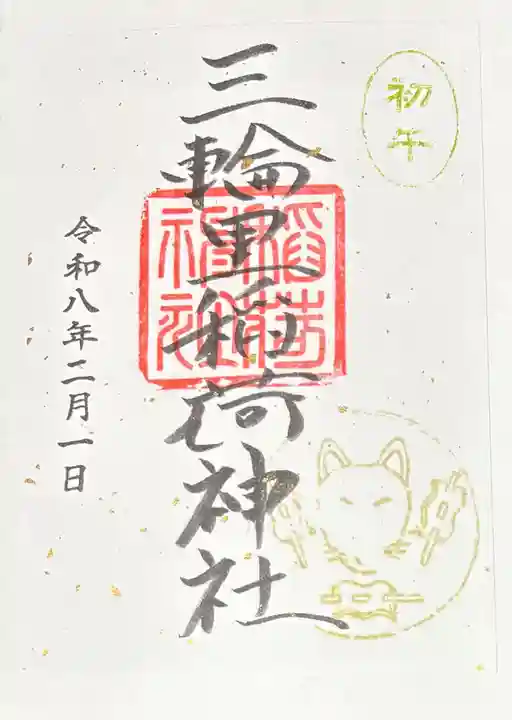 初午
三輪里稲荷神社
稲荷
神社
令和八年二月一日